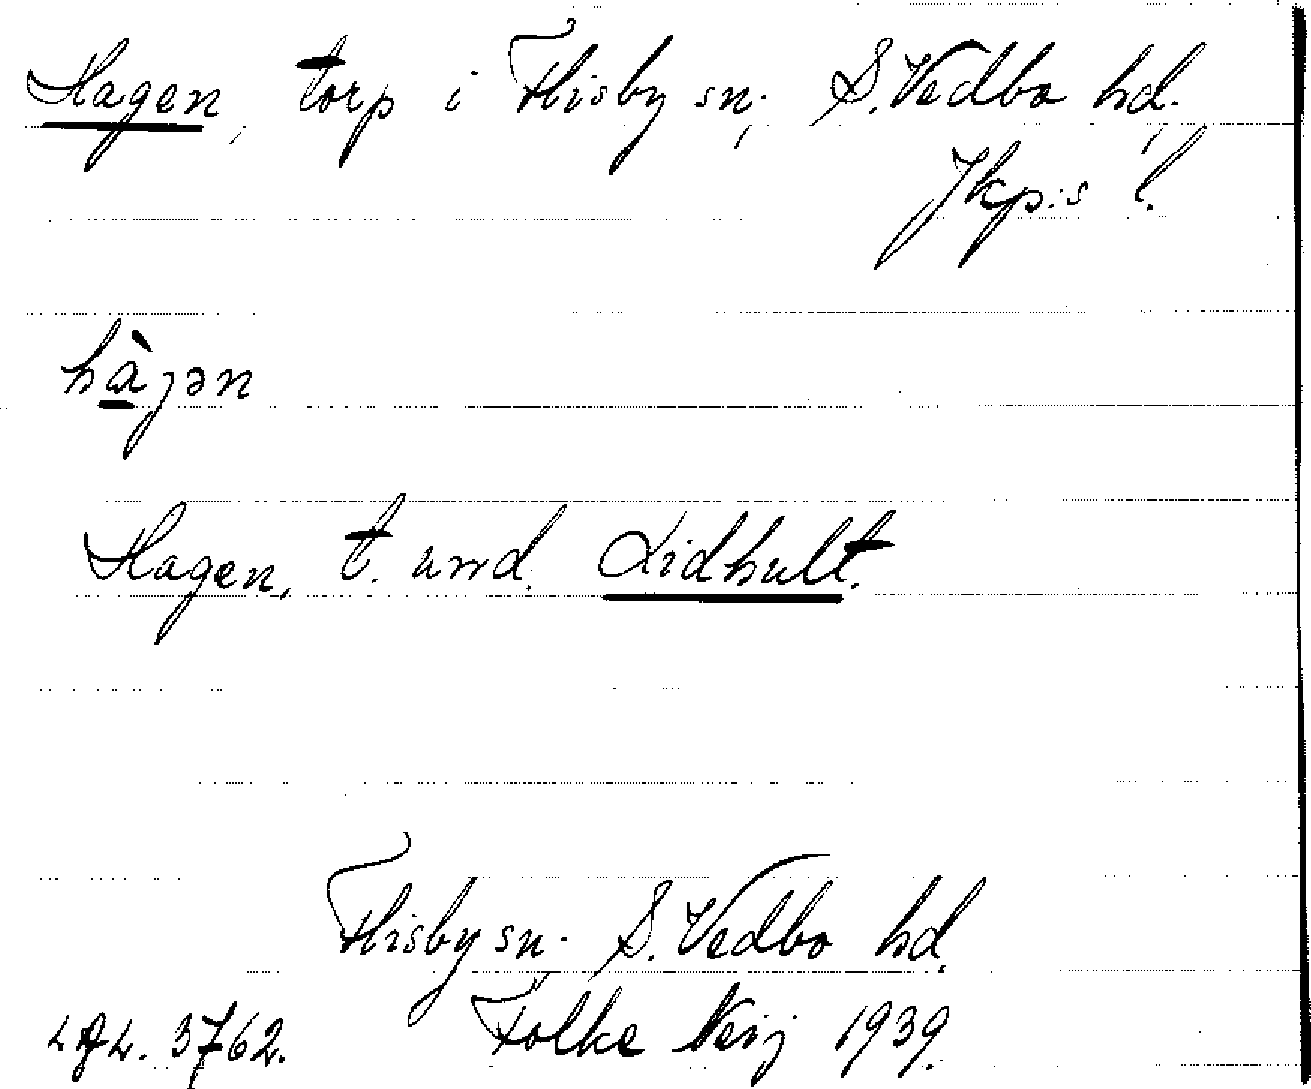 Hagen, torp i Flisby sn, S. Vedbo hd.,
Jkp:s l.
hàjən
Hagen, t. und. Lidhult.
Flisby sn. S. Vedbo hd.
Folke Neij 1939.
3762.